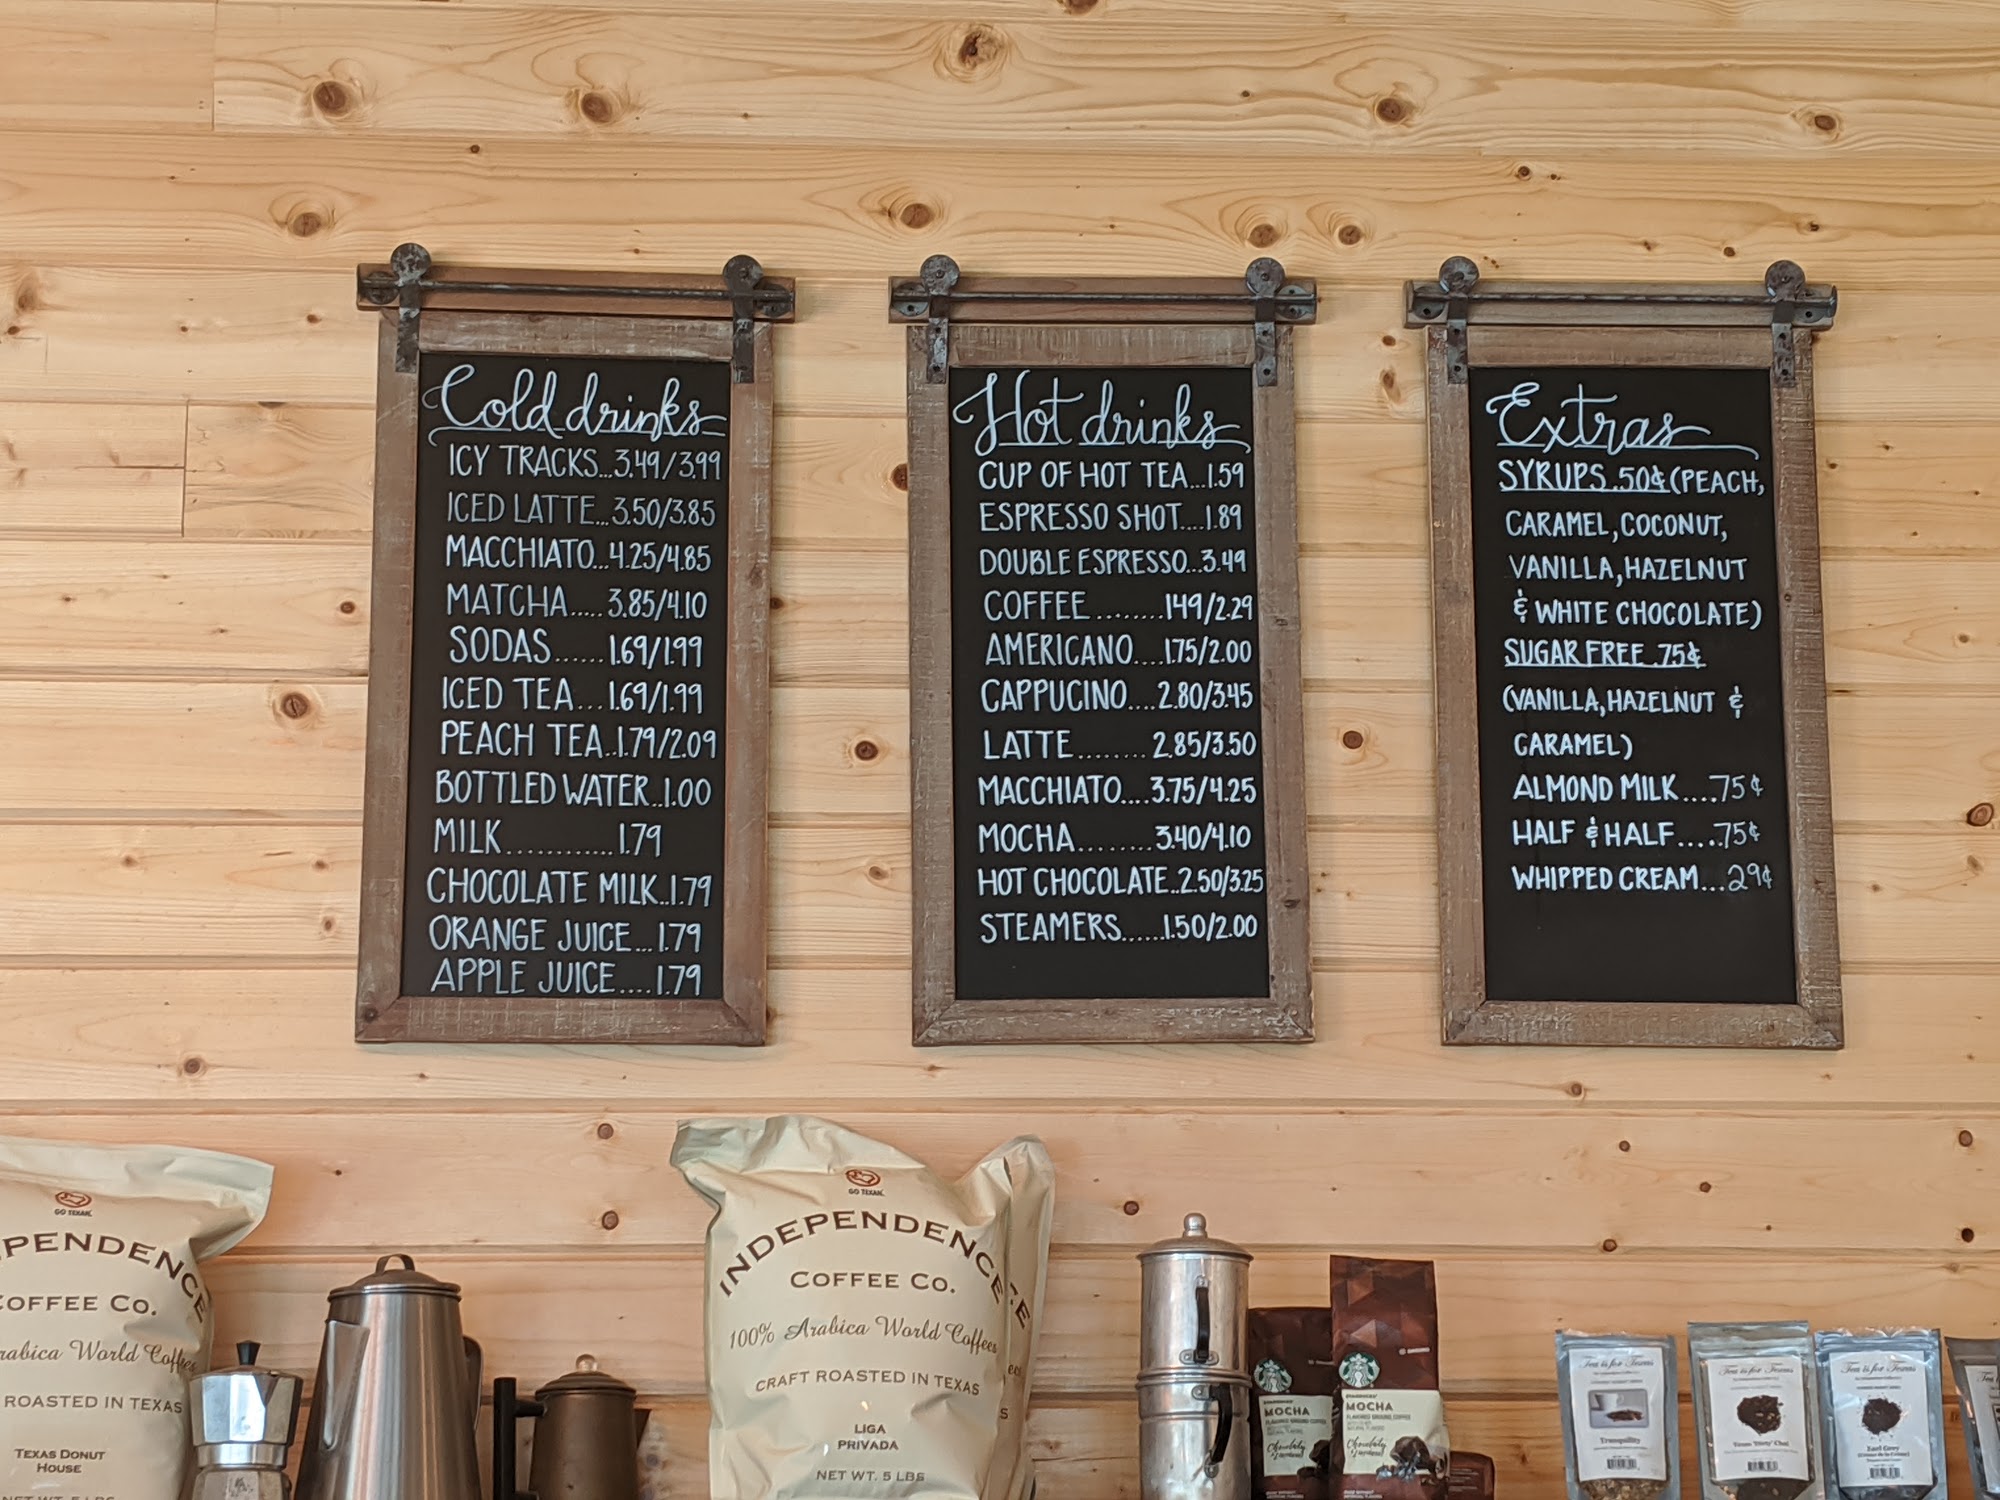 Cold drinks
ICY TRACKS...3.49/3.99
ICED LATTE...3.50/3.85
MACCHIATO...4.25/4.85
MATCHA.....3.85/4.10
SODAS......1.69/1.99
ICED TEA...1.69/1.99
PEACH TEA..1.79/2.09
BOTTLED WATER..1.00
MILK............1.79
CHOCOLATE MILK..1.79
ORANGE JUICE...1.79
APPLE JUICE....1.79
Hot drinks
CUP OF HOT TEA...1.59
ESPRESSO SHOT....1.89
DOUBLE ESPRESSO...3.49
COFFEE........149/2.29
AMERICANO....1.75/2.00
CAPPUCINO....2.80/3.45
LATTE........2.85/3.50
MACCHIATO....3.75/4.25
MOCHA........3.40/4.10
HOT CHOCOLATE..2.50/3.25
STEAMERS......1.50/2.00
Extras
SYRUPS .50¢ (PEACH,
CARAMEL, COCONUT,
VANILLA, HAZELNUT
& WHITE CHOCOLATE)
SUGAR FREE .75¢
(VANILLA, HAZELNUT &
CARAMEL)
ALMOND MILK.....75¢
HALF & HALF.....75¢
WHIPPED CREAM...29¢
GO TEXAN.
PENDENCE
COFFEE CO.
rabica World Coffees
ROASTED IN TEXAS
TEXAS DONUT
HOUSE
NET WT. 5 LBS
GO TEXAN.
INDEPENDENCE
COFFEE CO.
100% Arabica World Coffees
CRAFT ROASTED IN TEXAS
LIGA
PRIVADA
NET WT. 5 LBS
STARBUCKS
MOCHA
FLAVORED GROUND COFFEE
Chocolaty
STARBUCKS
MOCHA
FLAVORED GROUND COFFEE
Chocolaty
Tea is for Texas
Tranquility
Tea is for Texas
Texas "Dirty" Chai
Tea is for Texas
Earl Grey